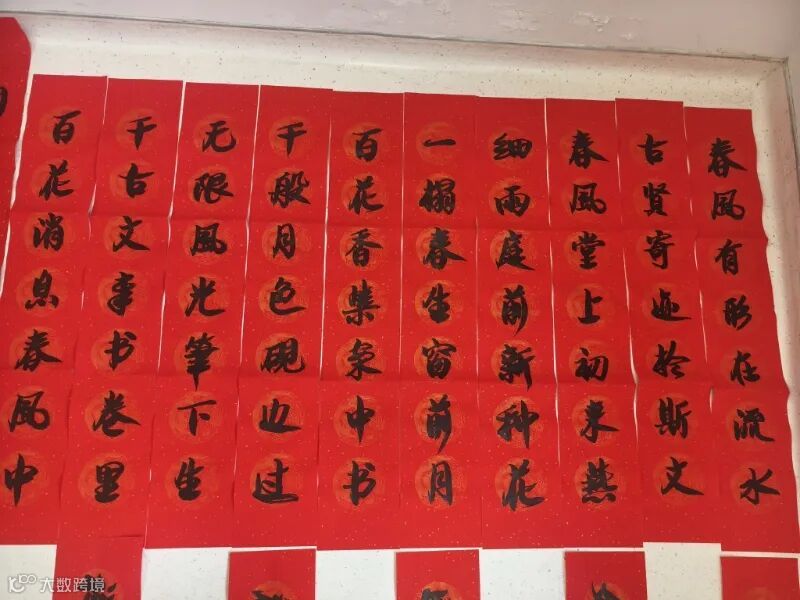 春風有形在流水
古賢寄迹於斯文
春風堂上初来燕
細雨庭前新种花
一榻春生窗前月
百花香集案中书
千般月色硯边过
无限風光筆下生
千古文章书卷里
百花消息春風中
大数跨境